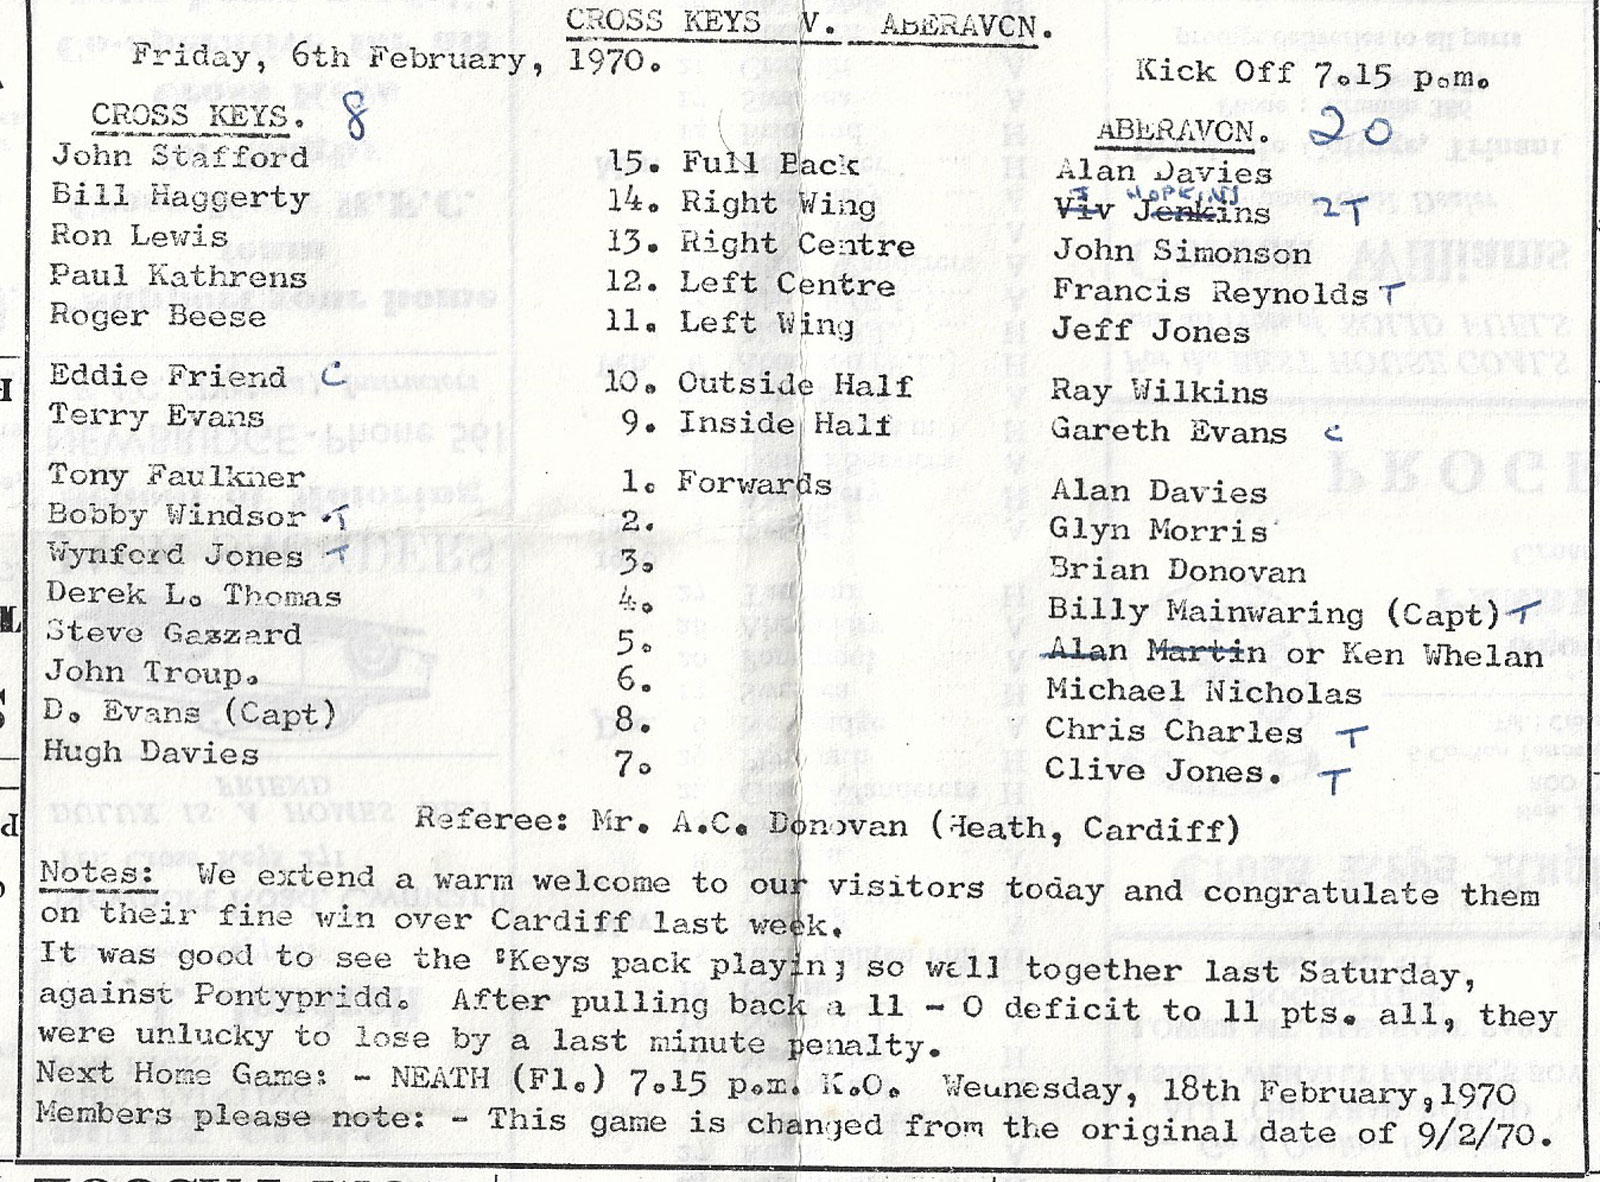 CROSS KEYS V. ABERAVON.
Friday, 6th February, 1970.
Kick Off 7.15 p.m.
CROSS KEYS. 8
ABERAVON. 20
John Stafford 15. Full Back Alan Davies
Bill Haggerty 14. Right Wing Viv Jenkins HOPKINS 2T
Ron Lewis 13. Right Centre John Simonson
Paul Kathrens 12. Left Centre Francis Reynolds T
Roger Beese 11. Left Wing Jeff Jones
Eddie Friend C 10. Outside Half Ray Wilkins
Terry Evans 9. Inside Half Gareth Evans C
Tony Faulkner 1. Forwards Alan Davies
Bobby Windsor T 2. Glyn Morris
Wynford Jones T 3. Brian Donovan
Derek L. Thomas 4. Billy Mainwaring (Capt) T
Steve Gazzard 5. Alan Martin or Ken Whelan
John Troup. 6. Michael Nicholas
D. Evans (Capt) 8. Chris Charles T
Hugh Davies 7. Clive Jones. T
Referee: Mr. A.C. Donovan (Heath, Cardiff)
Notes: We extend a warm welcome to our visitors today and congratulate them
on their fine win over Cardiff last week.
It was good to see the "Keys pack playing so well together last Saturday,
against Pontypridd. After pulling back a 11 - 0 deficit to 11 pts. all, they
were unlucky to lose by a last minute penalty.
Next Home Game: - NEATH (Fl.) 7.15 p.m. K.O. Wednesday, 18th February,1970
Members please note: - This game is changed from the original date of 9/2/70.